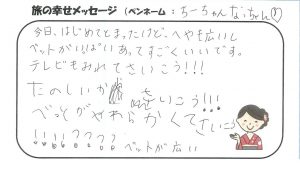 旅の幸せメッセージ (ペンネーム:ちーちゃんなっちゃん♡)
今日、はじめてとまったけど、へやも広いし
ベットがいっぱいあってすごくいいです。
テレビもみれてさいこう!!!
たのしいが さいこう!!!
べっとがやわらかくてさいこう
!!!!???? ベットが広い